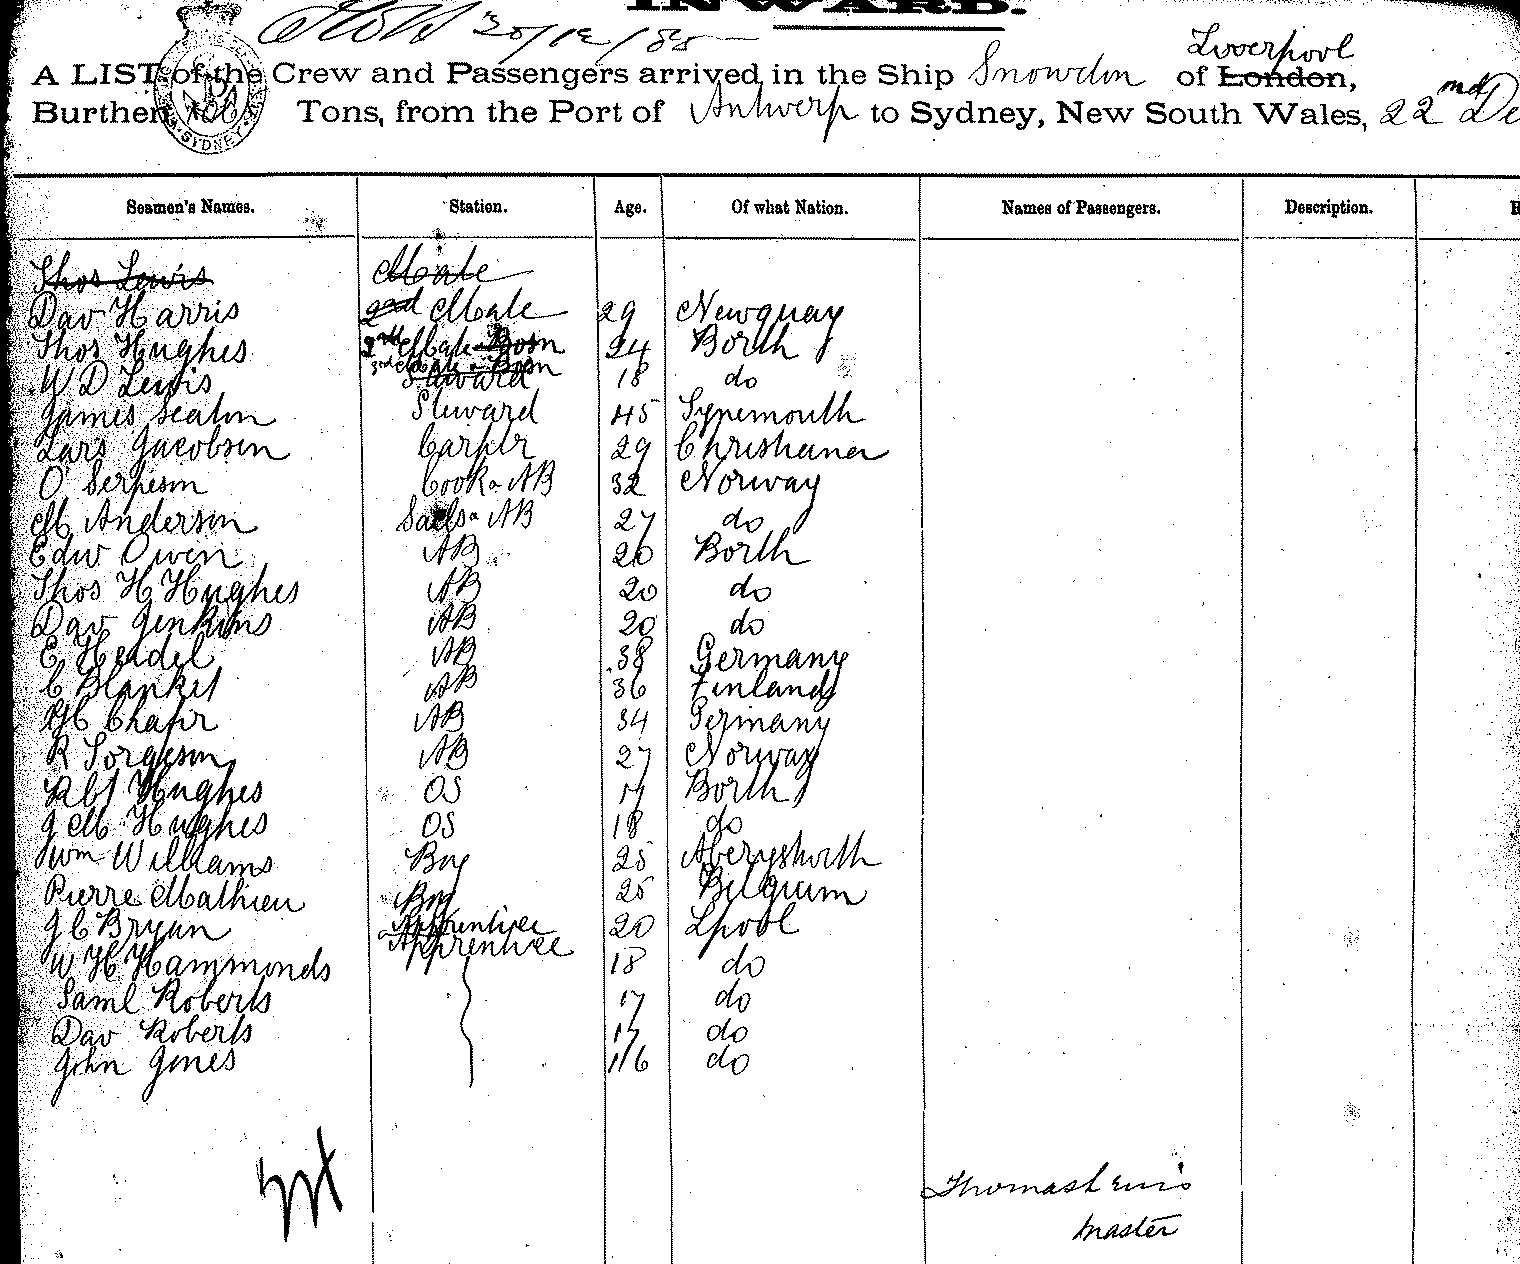 INWARD.
30/12/85
Liverpool
A LIST of the Crew and Passengers arrived in the Ship Snowdon of London,
Burthen Tons, from the Port of Antwerp to Sydney, New South Wales, 22nd De
Seamen's Names. Station. Age. Of what Nation. Names of Passengers. Description.
Thos Lewis Mate
Dav Harris 2nd Mate 29 Newquay
Thos Hughes 2nd Mate Bosn 24 Borth
W D Lewis 3rd Mate & Bosn Steward 18 do
James Seaton Steward 45 Tynemouth
Lars Jacobsen Carptr 29 Christiana
O Cook & AB 32 Norway
M Anderson Sails & AB 27 do
Edw Owen AB 20 Borth
Thos H Hughes AB 20 do
Dav Jenkins AB 20 do
E Heidel AB 38 Germany
C Blanket AB 36 Finland
AB 34 Germany
R AB 27 Norway
Robt Hughes OS 17 Borth
J M Hughes OS 18 do
Wm Williams Boy 25 Aberystwith
Pierre Mathieu Boy 25 Belgium
J C Bryan Apprentice 20 Lpool
W H Hammonds Apprentice 18 do
Saml Roberts 17 do
Dav Roberts 17 do
John Jones 16 do
Thomas Lewis
Master